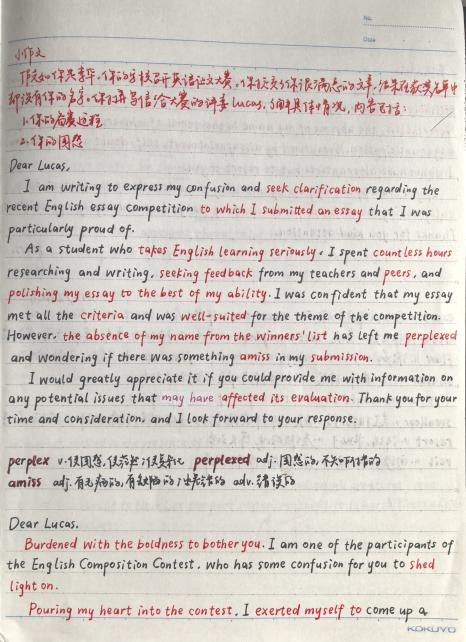 No.
Date
小作文
假如你是李华,你的学校召开英语征文大赛,你提交了份很满意的文章,结果在获奖名单中
却没有你的名字,你打算写信给大赛的评委Lucas,询问具体情况,内容包括:
1.你的备赛过程
2.你的困惑
Dear Lucas,
I am writing to express my confusion and seek clarification regarding the
recent English essay competition to which I submitted an essay that I was
particularly proud of.
As a student who takes English learning seriously, I spent countless hours
researching and writing, seeking feedback from my teachers and peers, and
polishing my essay to the best of my ability. I was confident that my essay
met all the criteria and was well-suited for the theme of the competition.
However, the absence of my name from the winners' list has left me perplexed
and wondering if there was something amiss in my submission.
I would greatly appreciate it if you could provide me with information on
any potential issues that may have affected its evaluation. Thank you for your
time and consideration, and I look forward to your response.
perplex v.使困惑,使茫然;使复杂化 perplexed adj.困惑的,不知所措的
amiss adj.有毛病的,有缺陷的;出差错的 adv.错误的
Dear Lucas,
Burdened with the boldness to bother you. I am one of the participants of
the English Composition Contest, who has some confusion for you to shed
light on.
Pouring my heart into the contest, I exerted myself to come up a
KOKUYO